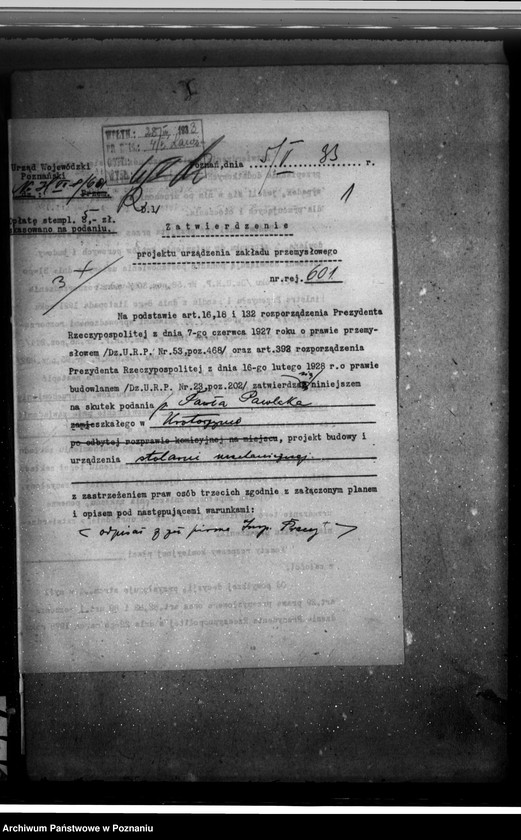 WPŁYN.: 28/IV 1933
Urząd Wojewódzki
Poznański
Poznań, dnia 5/V 33 r.
1
Opłatę stempl. 5,- zł.
skasowano na podaniu.
Zatwierdzenie
projektu urządzenia zakładu przemysłowego
nr.rej. 601
3 +
Na podstawie art.16,18 i 132 rozporządzenia Prezydenta
Rzeczypospolitej z dnia 7-go czerwca 1927 roku o prawie przemy-
słowem /Dz.U.R.P. Nr.53,poz.468/ oraz art.393 rozporządzenia
Prezydenta Rzeczypospolitej z dnia 16-go lutego 1928 r.o prawie
budowlanem /Dz.U.R.P. Nr.23,poz.202/ zatwierdza się niniejszem
na skutek podania p. Pawła Pawlika
zamieszkałego w Krotoszynie
po odbytej rozprawie komisyjnej na miejscu, projekt budowy i
urządzenia stolarni mechanicznej
z zastrzeżeniem praw osób trzecich zgodnie z załączonym planem
i opisem pod następującemi warunkami:
odpisać z pisma Insp. Pracy
Archiwum Państwowe w Poznaniu